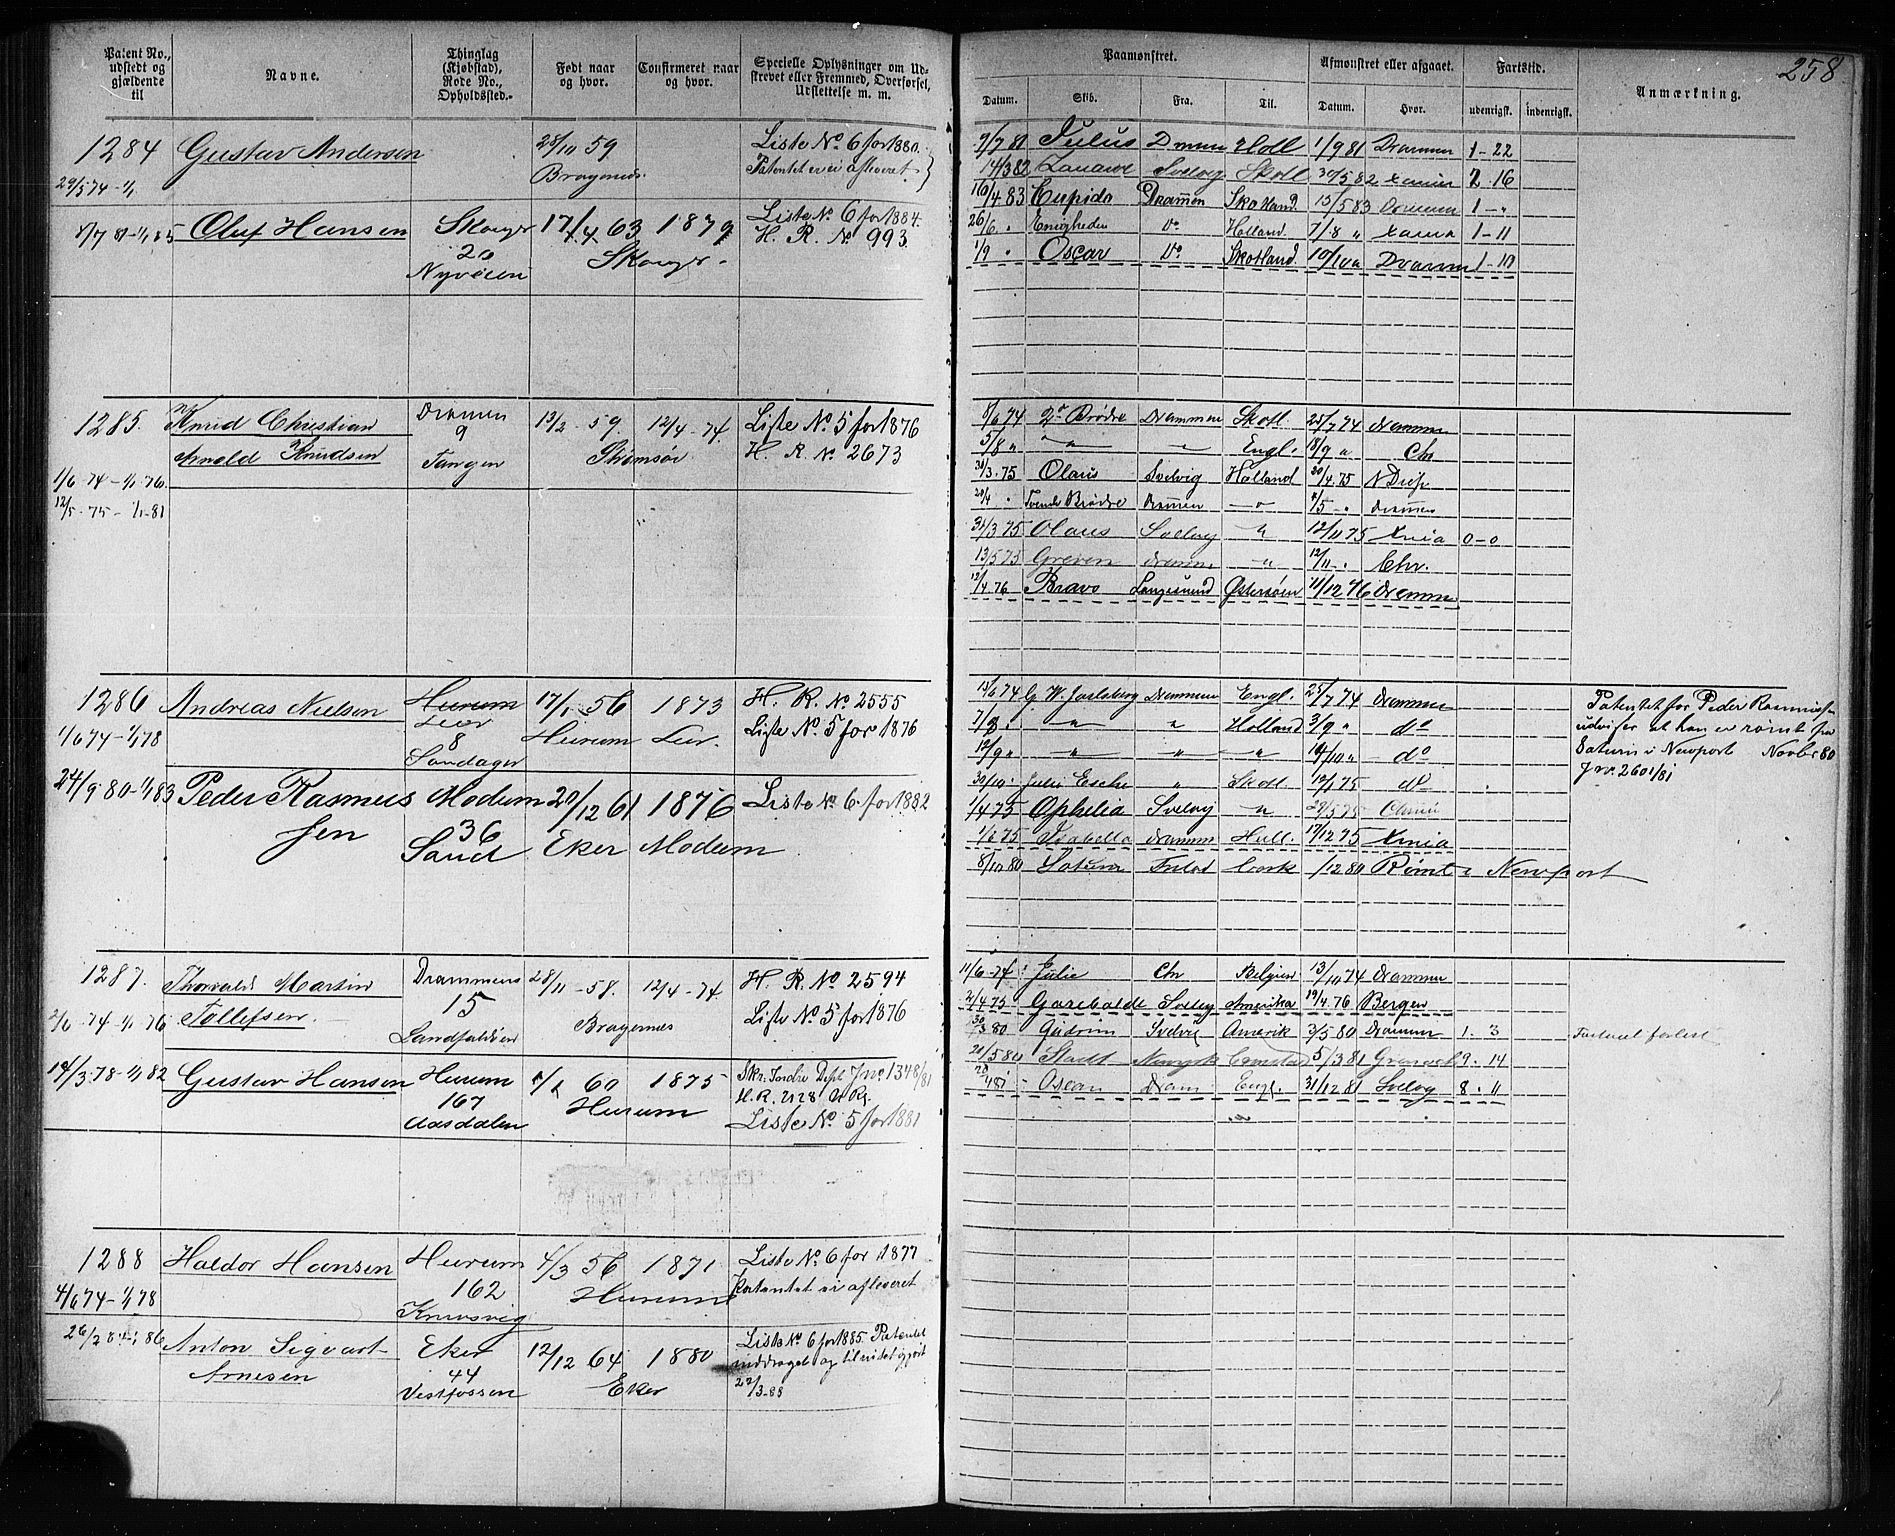 258
Patent No., udstedt og gjældende til
Navne.
Thinglag (Kjøbstad), Rode No., Opholdssted.
Født naar og hvor.
Confirmeret naar og hvor.
Specielle Oplysninger om Udskrevet eller Fremmed, Overførsel, Udslettelse m. m.
Paamønstret.
Afmønstret eller afgaaet.
Fartstid.
Anmærkning.
Datum. Skib. Fra. Til. Datum. Hvor. udenrigsk. indenrigsk.
1284 Gustav Andersen 28/10 59 Liste No 6 for 1880.
29/5 74 Bragernes Patentet er ei afleveret
Oluf Hansen Skoger 17/4 63 1879 Liste No 6 for 1884.
20 Skoger H. R. No 993
Nyveien
9/7 81 Julius Dmmen Holl 1/9 81 Drammen 1-22
14/3 82 Svelvig Skotl 30/5 82 Xania 2 16
16/4 83 Cupido Drammen Skotland 15/5 83 Drammen 1-"
26/6 " Enigheden Do Holland 7/8 " Xania 1-11
1/9 " Oscar Do Skotland Drammen 1-10
1285. Knud Christian Dramen 13/2-59. 12/4-74. Liste No 5 for 1876
Arnold Knudsen 9 Strømsø H. R. No 2673
1/6-74-1/1-76. Tangen
12/5-75-1/1-81
8/6 74 2de Brødre Drammen Skotl 25/7 74 Drammen
5/8 " " " Engl. 18/9 " Chr
31/3.75 Olaus Svelvig Holland 30/4.75 N Diep
20/4 " Tvende Brødre Drammen -"- /5-" Drammen
31/3 75 Olaus Svelvig " 12/11 75 Xnia 0-0
13/5 75 Greven Dramm. " 12/11-. Chr.
12/4.76 Bravo Langesund Østersøen 11/12 76 Dramme
1286 Andreas Nielsen Hurum 17/1 56 1873 H. R. No 2555
1/6 74-1/1 78 Lier Hurum Lier. Liste No 5 for 1876
8
Søndager
24/9 80-1/1 83 Peder Rasmus Modum 20/12 61 1876 Liste No 6 for 1882
sen 36 Eker Modum
Sand
13/6 74 G W. Jarlsberg Drammen Engl. 25/7 74 Drammen
7/8 " " " Holland 3/9 " do
12/9 " " " " 14/10 " do
30/10 " Julie Esche " Skotl. 12/1 75 do
1/4 75 Ophelia Svelvig " 29/5 75
1/6 75 Isabella Dramm Hull. 17/12 75 Xnia
8/10 80 Saturn Cork /12 80 Rømt i Newport
Patentet for Peder Rasmussen
udviser at han er rømt fra
Saturn i Newport Novbr 80
Jnr. 2601/81
1287. Thorvald Martin Drammens 28/11-58. 12/4-74. H. R. No 2594
Tollefsen. 15 Bragernes Liste No 5 for 1876
2/6-74-1/1 76 Landfaldøen
14/3.78-1/1 82 Gustav Hansen Hurum 60 1875 Skr. Indre Dept Jno 1348/81
167 Hurum H. R. 2128
Aasdalen Liste No 5 for 1881
11/6-74 Julie Chr Belgien 13/10 74 Drammen
2/4 75 Garibalde Svelvig Amerika 19/4.76 Bergen
30/3 80 Gudrun Svelvig Amerik 3/5 80 Drammen 1. 3
20/5 80 Stadt 5/3 81 9. 14
20/4 81 Oscar Dram Engl. 31/12 81 Svelvig 8. 11
1288 Haldor Hansen Hurum 4/3 56 1871 Liste No 6 for 1877
4/6 74-1/1 78 162 Hurum Patentet ei afleveret
Knivsvig
26/2 84-1/1 86 Anton Sigvart Eker 12/12 64 1880 Liste No 6 for 1885. Patentet
Arnesen 44 Eker inddraget og tilintetgjort
Vestfossen 22/3-88